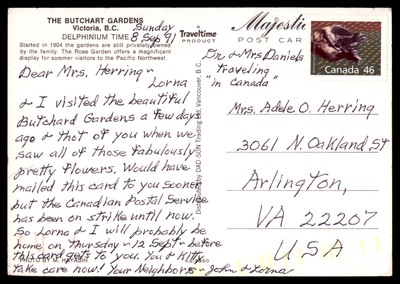 THE BUTCHART GARDENS
Victoria, B.C.
DELPHINIUM TIME
Started in 1904 the gardens are still privately owned
by the family. The Rose Garden offers a magnificent
display for summer visitors to the Pacific Northwest.
Sunday
8 Sep 91
Dear Mrs. Herring -
Lorna
& I visited the beautiful
Butchart Gardens a few days
ago & thot of you when we
saw all of those fabulously
pretty flowers. Would have
mailed this card to you sooner
but the Canadian Postal Service
has been on strike until now.
So Lorna & I will probably be
home on Thursday - 12 Sept - before
this card gets to you. You & Kitty
take care now! Your Neighbors - John & Lorna
PHOTO BY M. HAYASHI
Traveltime
PRODUCT
Distributed by DAD SON Trading Ltd., Vancouver, B.C.
Majestic
POST CARD
Dr & Mrs Daniels
traveling
in Canada"
Canada 46
Mrs. Adele O. Herring
3061 N. Oakland St
Arlington,
VA 22207
USA